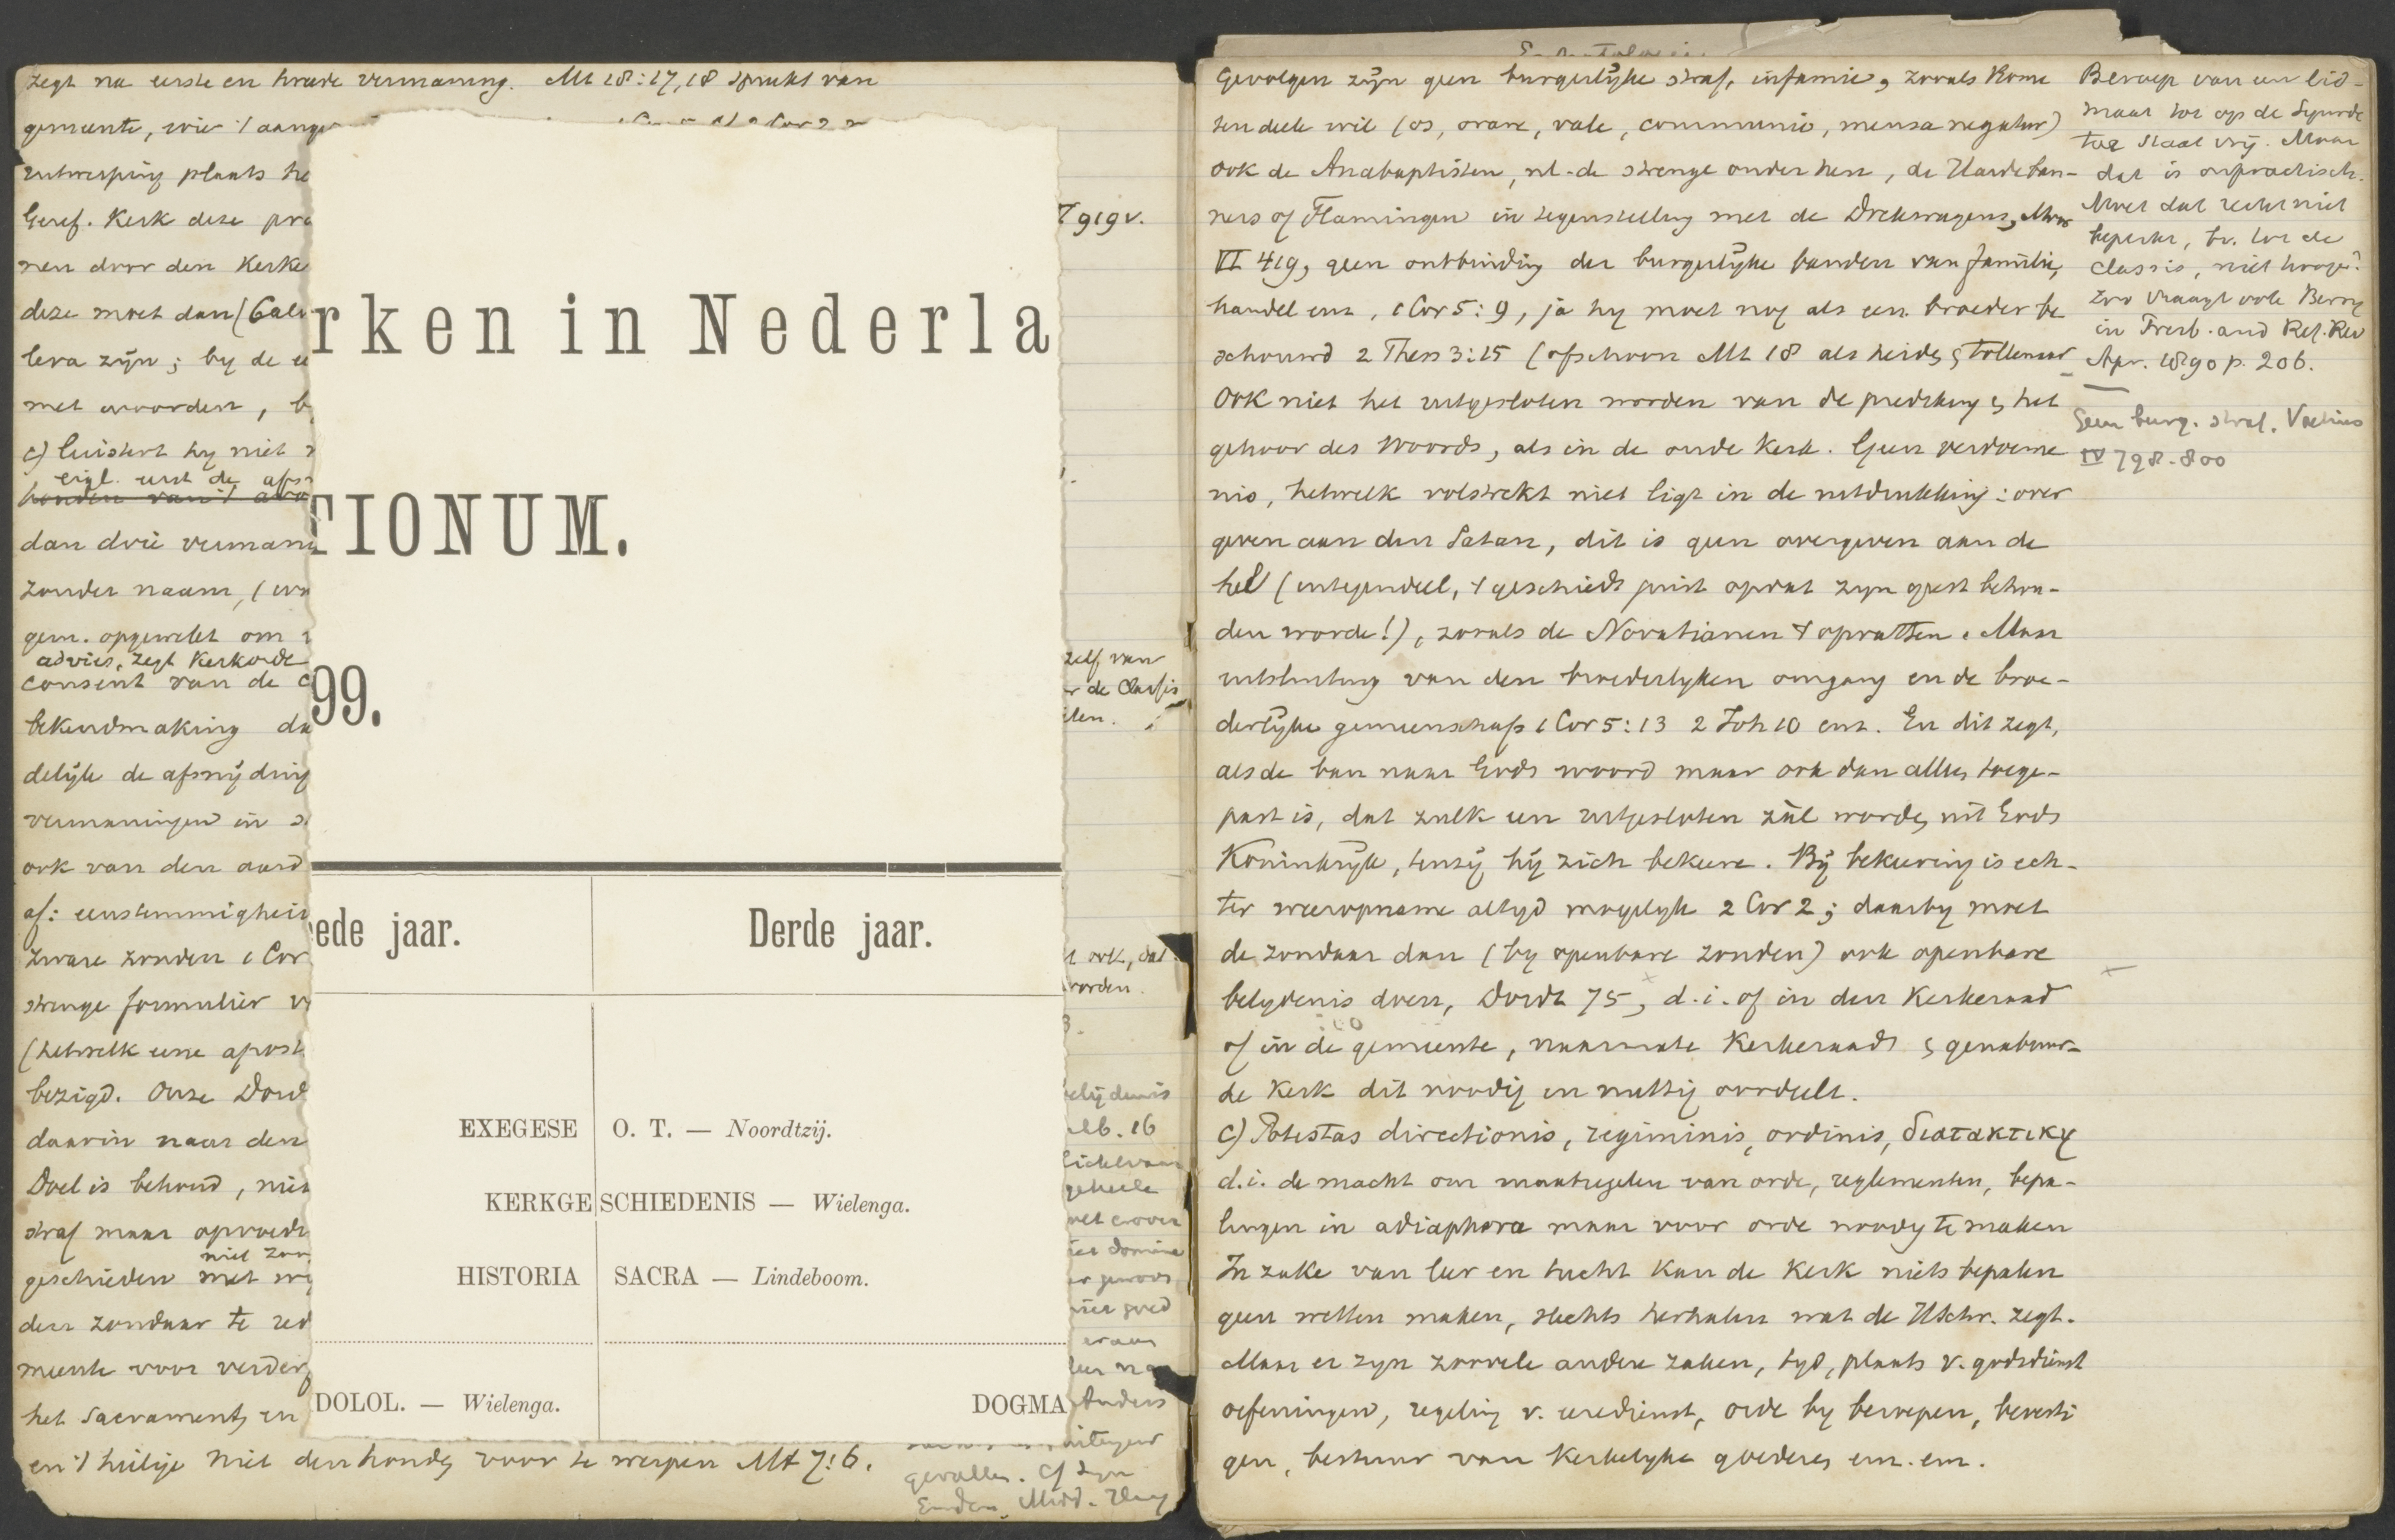 zegt na eerste en tweede vermaning. Mt 18:17,18 spreekt van
gemeente, wie 't aange
entwerping plaats he
Geref. Kerk deze pra
nen door den Kerke
deze moet dan (Calv
leva zijn; by de
met woorden, b
c) luistert hy niet
eigl. eerst de afs
dan drie vermani
zonder naam, (
gem. opgewekt om
advies, zegt Kerkorde
consent van de C
bekendmaking da
delijk de afsnijding
vermaningen in
ook van den aard
af: eenstemmigheid
zware zonden 1 Cor
strenge formulier v
(hetwelk eene apost
bezigd. Onze Dord
daarin naar den
Doel is behoud, niet
straf maar opvoed
niet zoo
geschieden met
den zondaar te red
meente voor verder
het Sacrament, en
en 't heilige niet den honden voor te werpen Mt 7:6.
rken in Nederla
TIONUM.
99.
ede jaar. Derde jaar.
EXEGESE O. T. — Noordtzij.
KERKGESCHIEDENIS — Wielenga.
HISTORIA SACRA — Lindeboom.
DOLOL. — Wielenga. DOGMA
919 v.
zelf van
r de Classis
len.
ook, dat
worden.
elijdenis
16
geheele
domine
goed
eraan
Anders
gevallen. Cf
Emden, Midd.
Gevolgen zijn geen burgerlijke straf, infamie, zooals Rome
ten deele wil (os, orare, vale, communio, mensa negatur)
ook de Anabaptisten, nl. de strenge onder hen, de Hardeban-
ners of Flamingen in tegenstelling met de Drekwagens, Moor
VI 419, geen ontbinding der burgerlijke banden van familie,
handel enz, 1 Cor 5:9, ja hy moet nog als een broeder be
schouwd 2 Thess 3:15 (ofschoon Mt 18 als heiden & tollenaar
Ook niet het uitgesloten worden van de prediking & het
gehoor des Woords, als in de oude Kerk. Geen verdoeme
nis, hetwelk volstrekt niet ligt in de uitdrukking: over
geven aan den Satan, dit is geen overgeven aan de
hel (integendeel, 't geschiedt juist opdat zijn geest behou-
den worde!), zooals de Novatianen 't opvatten. Maar
uitsluiting van den broederlyken omgang en de broe-
derlijke gemeenschap 1 Cor 5:13 2 Joh 10 enz. En dit zegt,
als de ban naar Gods woord maar ook dan alleen toege-
past is, dat zulk een uitgesloten zal worden uit Gods
Koninkrijk, tenzij hij zich bekeere. Bij bekeering is ech-
ter weeropname altyd mogelyk 2 Cor 2; daarby moet
de zondaar dan (by openbare zonden) ook openbare
belydenis doen, Dordt 75, d.i. of in den Kerkeraad
of in de gemeente, naarmate Kerkeraad & genabuur-
de Kerk dit noodig en nuttig oordeelt.
C) Potestas directionis, regiminis, ordinis, διατακτικη
d.i. de macht om maatregelen van orde, reglementen, bepa-
lingen in adiaphora maar voor orde noodig te maken
In zake van leer en tucht kan de Kerk niets bepalen
geen wetten maken, slechts herhalen wat de HSchr. zegt.
Maar er zyn zoovele andere zaken, tyd, plaats v. godsdienst
oefeningen, regeling v. eredienst, orde by beroepen, bevesti
gen, bestuur van Kerkelyke goederen enz. enz.
Beroep van een lid-
maat tot op de Synode
toe staat vrij. Maar
dat is onpractisch.
Moet dat recht niet
beperkt, bv. tot de
classis, niet hooger?
Zoo vraagt ook Beroep
in Presb. and Ref. Rev
Apr. 1890 p. 206.
Geen burg. straf. Voetius
IV 798-800